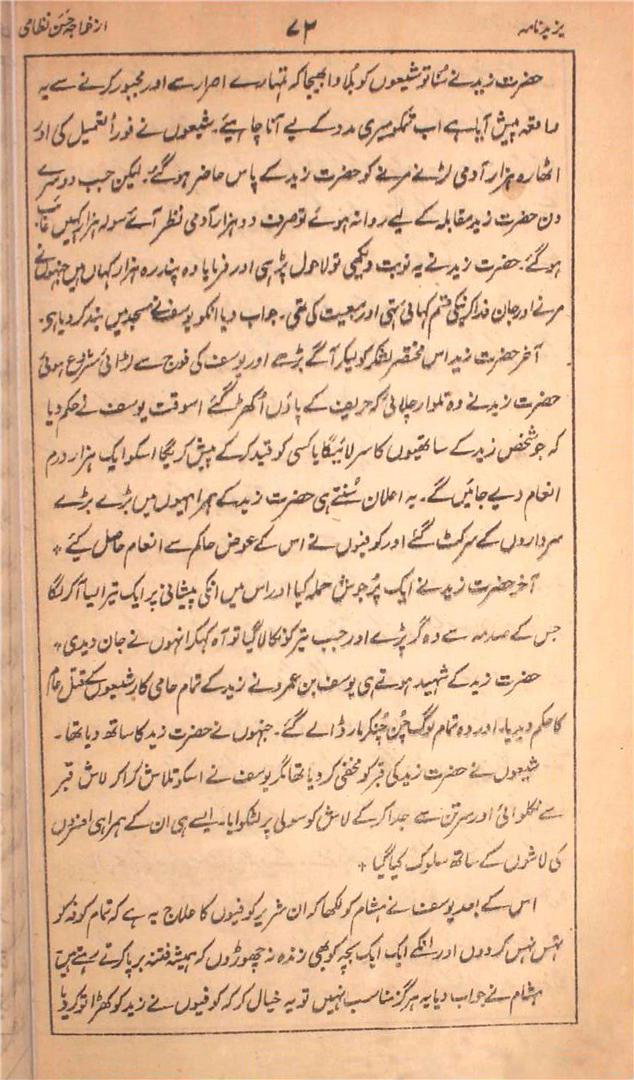 یزیدنامہ ۷۲ از خواجہ حسن نظامی
حضرت زید نے سُنا تو شیعوں کو بُلاوا بھیجا کہ تمہارے اصرار سے اور مجبور کرنے سے یہ
واقعہ پیش آیا ہے اب تمکو میری مدد کے لیے آنا چاہیئے۔ شیعوں نے فوراً تعمیل کی اور
اٹھارہ ہزار آدمی لڑنے مرنے کو حضرت زید کے پاس حاضر ہو گئے۔ لیکن جب دوسرے
دن حضرت زید مقابلہ کے لیے روانہ ہوئے تو صرف دو ہزار آدمی نظر آئے سولہ ہزار کہیں غائب
ہو گئے۔ حضرت زید نے یہ نوبت دیکھی تو لاحول پڑہی اور فرمایا وہ پندرہ ہزار کہاں ہیں جنہوں نے
مرنے اور جان فدا کرنیکی قسم کہائی تہی اور بیعت کی تھی۔ جواب دیا انکو یوسف نے مسجد میں بند کر دیا ہی۔
آخر حضرت زید اس مختصر لشکر کو لیکر آگے بڑہے اور یوسف کی فوج سے لڑائی شروع ہوئی
حضرت زید نے وہ تلوار چلائی کہ حریف کے پاؤں اُکھڑ گئے اسوقت یوسف نے حکم دیا
کہ جو شخص زید کے ساتھیوں کا سر لائیگا یا کسی کو قید کر کے پیش کریگا اسکو ایک ہزار درم
انعام دیے جائیں گے۔ یہ اعلان سُنتے ہی حضرت زید کے ہمراہیوں میں بڑے بڑے
سرداروں کے سر کٹ گئے اور کوفیوں نے اس کے عوض حاکم سے انعام حاصل کیئے *
آخر حضرت زید نے ایک پُرجوش حملہ کیا اور اس میں انکی پیشانی پر ایک تیر ایسا آکر لگا
جس کے صدمہ سے وہ گر پڑے اور جب تیر کو نکالا گیا تو آہ کہکر انہوں نے جان دیدی *
حضرت زید کے شہید ہوتے ہی یوسف بن عمرو نے زید کے تمام حامی کار شیعوں کے قتل عام
کا حکم دیدیا۔ اور وہ تمام لوگ چُن چُنکر مار ڈالے گئے۔ جنہوں نے حضرت زید کا ساتھ دیا تھا۔
شیعوں نے حضرت زید کی قبر کو مخفی کر دیا تھا مگر یوسف نے اسکو تلاش کرا کر لاش قبر
سے نکلوائی اور سر تن سے جدا کر کے لاش کو سولی پر لٹکوایا۔ ایسے ہی ان کے ہمراہی افسروں
کی لاشوں کے ساتھ سلوک کیا گیا *
اس کے بعد یوسف نے ہشام کو لکھا کہ ان شریر کوفیوں کا علاج یہ ہے کہ تمام کوفہ کو
تہس نہس کر دوں اور انکے ایک ایک بچہ کو بھی زندہ نہ چھوڑوں کہ ہمیشہ فتنہ برپا کرتے رہتے ہیں
ہشام نے جواب دیا یہ ہرگز مناسب نہیں تو یہ خیال کر کہ کوفیوں نے زید کو کھڑا تو کر دیا